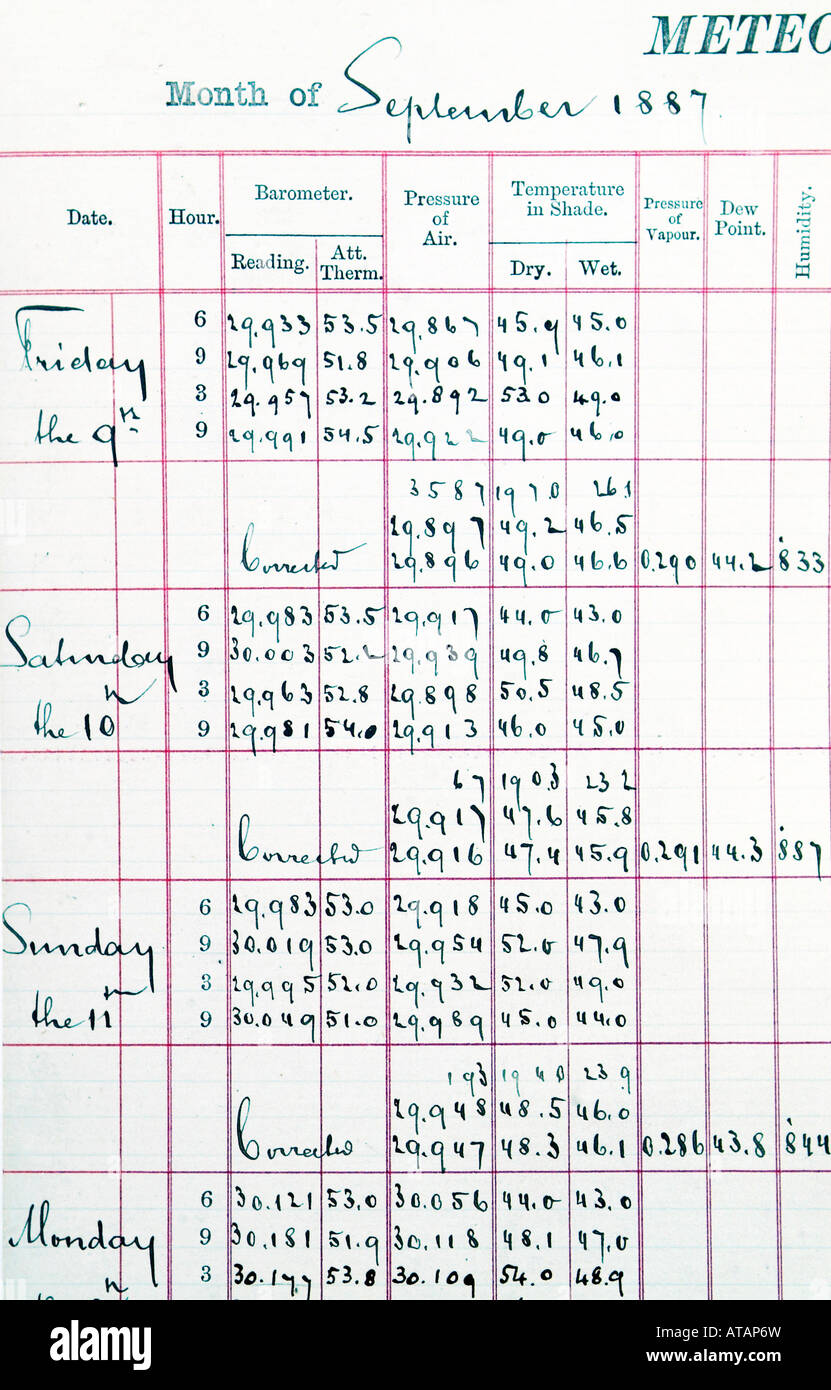 METEO
Month of September 1887.
Date. Hour. Barometer. Pressure of Air. Temperature in Shade. Pressure of Vapour. Dew Point. Humidity.
Reading. Att. Therm. Dry. Wet.
6 29.933 53.5 29.867 45.9 45.0
Friday 9 29.969 51.8 29.906 49.1 46.1
3 29.957 53.2 29.892 53.0 49.0
the 9th 9 29.991 54.5 29.922 49.0 46.0
3587 1970 261
29.897 49.2 46.5
Corrected 29.896 49.0 46.6 0.290 44.2 .833
6 29.983 53.5 29.917 44.0 43.0
Saturday 9 30.003 52.2 29.939 49.8 46.7
3 29.963 52.8 29.898 50.5 48.5
the 10th 9 29.981 54.0 29.913 46.0 45.0
67 1903 232
29.917 47.6 45.8
Corrected 29.916 47.4 45.9 0.291 44.3 .887
6 29.983 53.0 29.918 45.0 43.0
Sunday 9 30.019 53.0 29.954 52.0 47.9
3 29.995 52.0 29.932 52.0 49.0
the 11th 9 30.049 51.0 29.989 45.0 44.0
193 1940 239
29.948 48.5 46.0
Corrected 29.947 48.3 46.1 0.286 43.8 .844
6 30.121 53.0 30.056 44.0 43.0
Monday 9 30.181 51.9 30.118 48.1 47.0
3 30.177 53.8 30.109 54.0 48.9
alamy
Image ID: ATAP6W
www.alamy.com